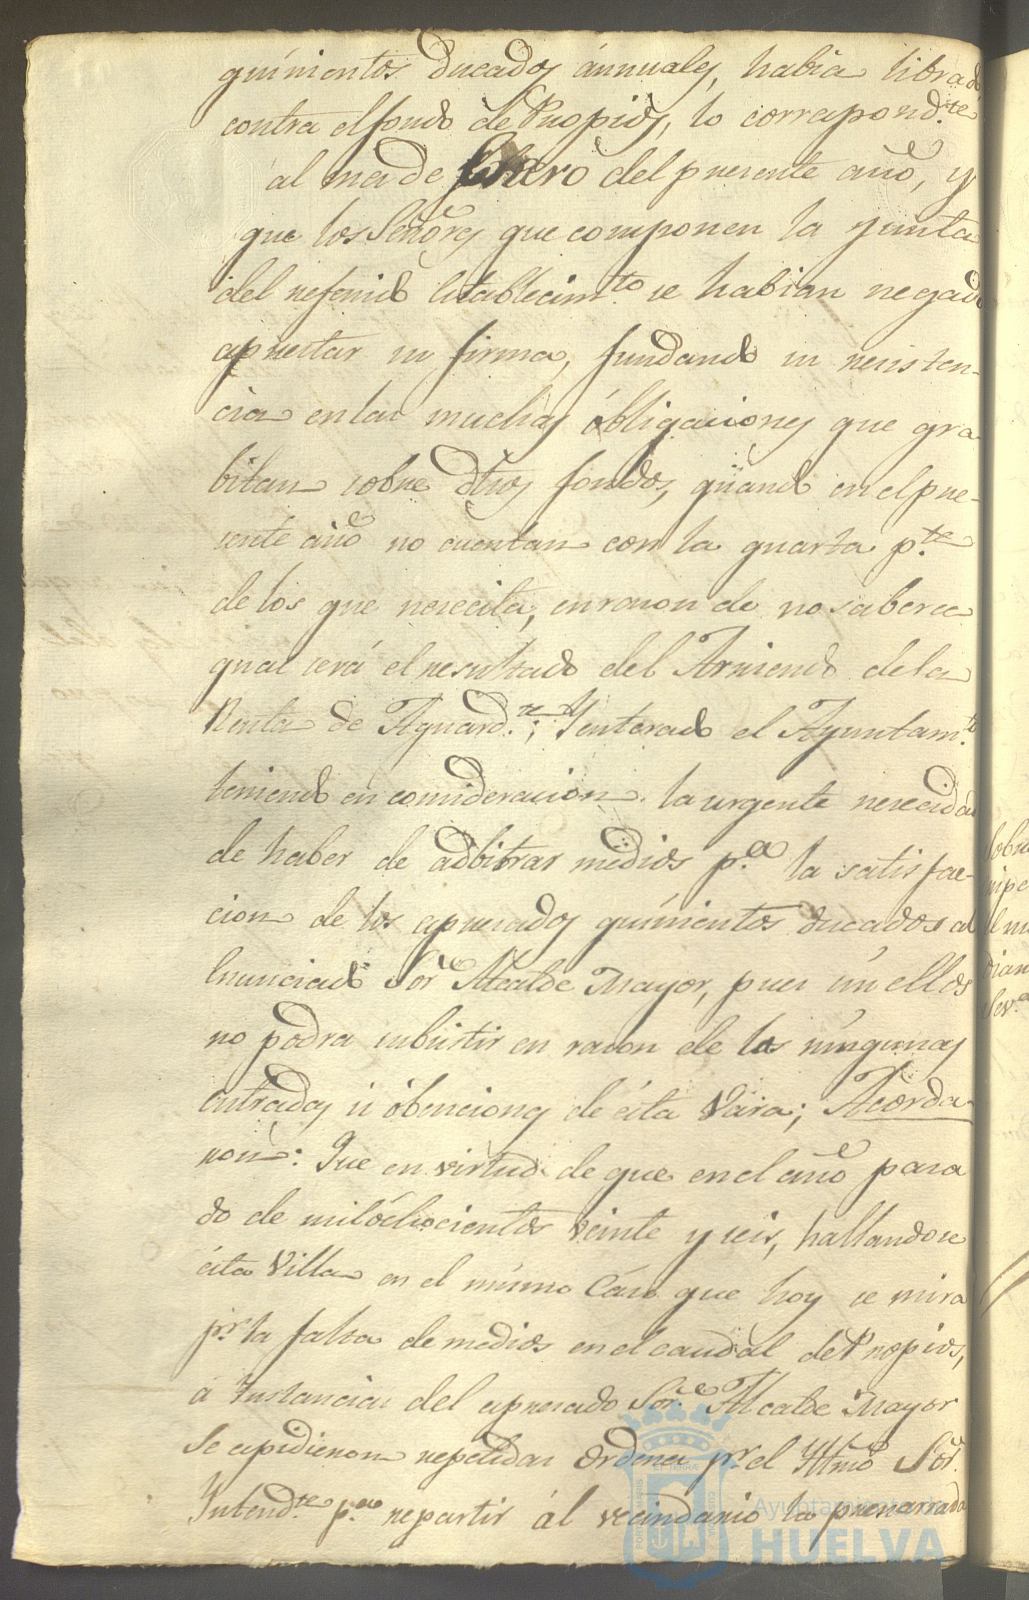 quinientos ducados ánnuales, habia librado
contra el fondo de Propios, lo correspond.te
al mes de Enero del presente año, y
que los Señores que componen la Junta
del referido Establecim.to se habian negado
aprestar su firma, fundando su resisten-
cia en las muchas óbligaciones que gra
bitan sobre dhos fondos, quando en el pre-
sente año no cuentan con la quarta p.te
de los que nesecita, en razon de no saberce
qual será el resultado del Arriendo de la
Renta de Aguard.te; Y enterado el Ayuntam.to
teniendo en concideracion la urgente nesecidad
de haber de adbitrar medios p.a la satisfac-
cion de los apresados quinientos ducados al
Enunciado Sor Alcalde Mayor, pues sin ellos
no podra subsistir en razon de las ningunas
entradas ú óbenciones de ésta Vara; Acorda-
ron: Que en virtud de que en el año pasa
do de mil óchocientos veinte y seis, hallandose
ésta Villa en el mismo Caso que hoy se mira
pr la falta de medios en el caudal de Propios,
á Instancias del apresado Sor. Alcalde Mayor
Se expidieron repetidas ordenes pr el Yllmo Sor.
Intend.te p.a repartir ál vecindario la prenarrada
Ayuntamiento de
HUELVA